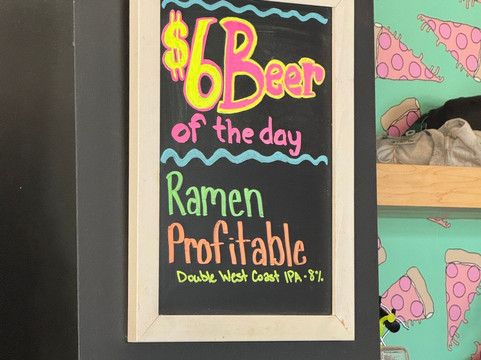 $6 Beer
of the day
Ramen
Profitable
Double West Coast IPA - 8%